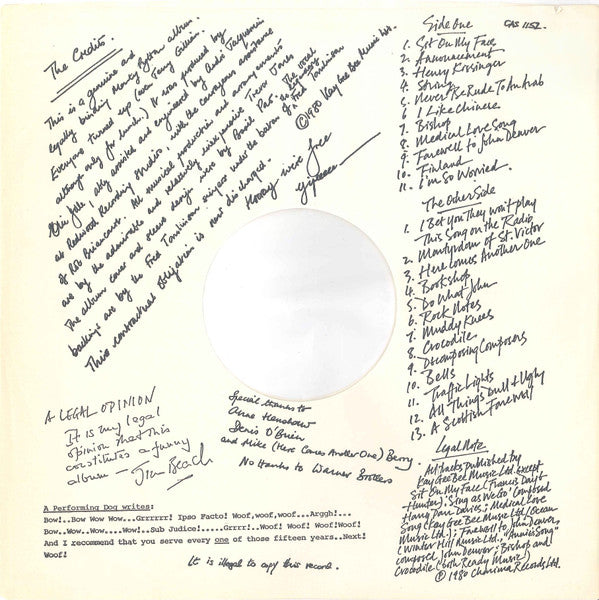 The Credits.
This is a genuine and
legally binding Monty Python album.
Everyone turned up (even Terry Gilliam
although only for lunch.) It was produced by
Eric Idle, ably assisted and engineered by André Jacquemin
at Redwood Recording Studios with the courageous assistance
of Rob Briancourt. All musical production and arrangements
are by the admirable and relatively inexpensive Trevor Jones
The album cover and sleeve design were by Basil Pao. The vocal
backings are by the Fred Tomlinson singers under the baton of Fred Tomlinson
This contractual obligation is now discharged.
Hooray we're free
Yipeeee
© 1980 Kay Gee Bee Music Ltd.
Side One
CAS 1152
1. Sit On My Face
2. Announcement
3. Henry Kissinger
4. String
5. Never Be Rude To An Arab
6 I Like Chinese
7. Bishop
8. Medical Love Song
9. Farewell to John Denver
10. Finland
11. I'm So Worried.
The Other Side
1. I Bet You They won't play
This Song on the Radio
2. Martyrdom of St. Victor
3. Here Comes Another One
4. Bookshop
5. Do What John
6. Rock Notes
7. Muddy Knees
8. Crocodile
9. Decomposing Composers
10. Bells
11. Traffic Lights
12. All Things Dull & Ugly
13. A Scottish Farewell
Legal Note
All tracks published by
Kay Gee Bee Music Ltd. except
Sit On My Face (Francis Day &
Hunter). Sing as We Go' Composed
Harry Parr Davies; Medical Love
Song (Kay Gee Bee Music Ltd./Ocean
Music Ltd.); Farewell to John Denver,
(Winter Hill Music Ltd., "Annie's Song"
composed John Denver; Bishop and
Crocodile (both Ready Music)
© 1980 Charisma Records Ltd.
A LEGAL OPINION
It is my legal
opinion that this
constitutes a funny
album - Jim Beach
Special thanks to
Anne Henshaw
Denis O'Brien
and Mike (Here Comes Another One) Berry
No thanks to Warner Brothers
A Performing Dog writes:
Bow!..Bow Wow Wow...Grrrrrr! Ipso Facto! Woof,woof,woof...Arggh!...
Bow..Wow..Wow....Wow!..Sub Judice!.....Grrrr!..Woof! Woof! Woof!Woof!
And I recommend that you serve every one of those fifteen years..Next!
Woof!
It is illegal to copy this record.